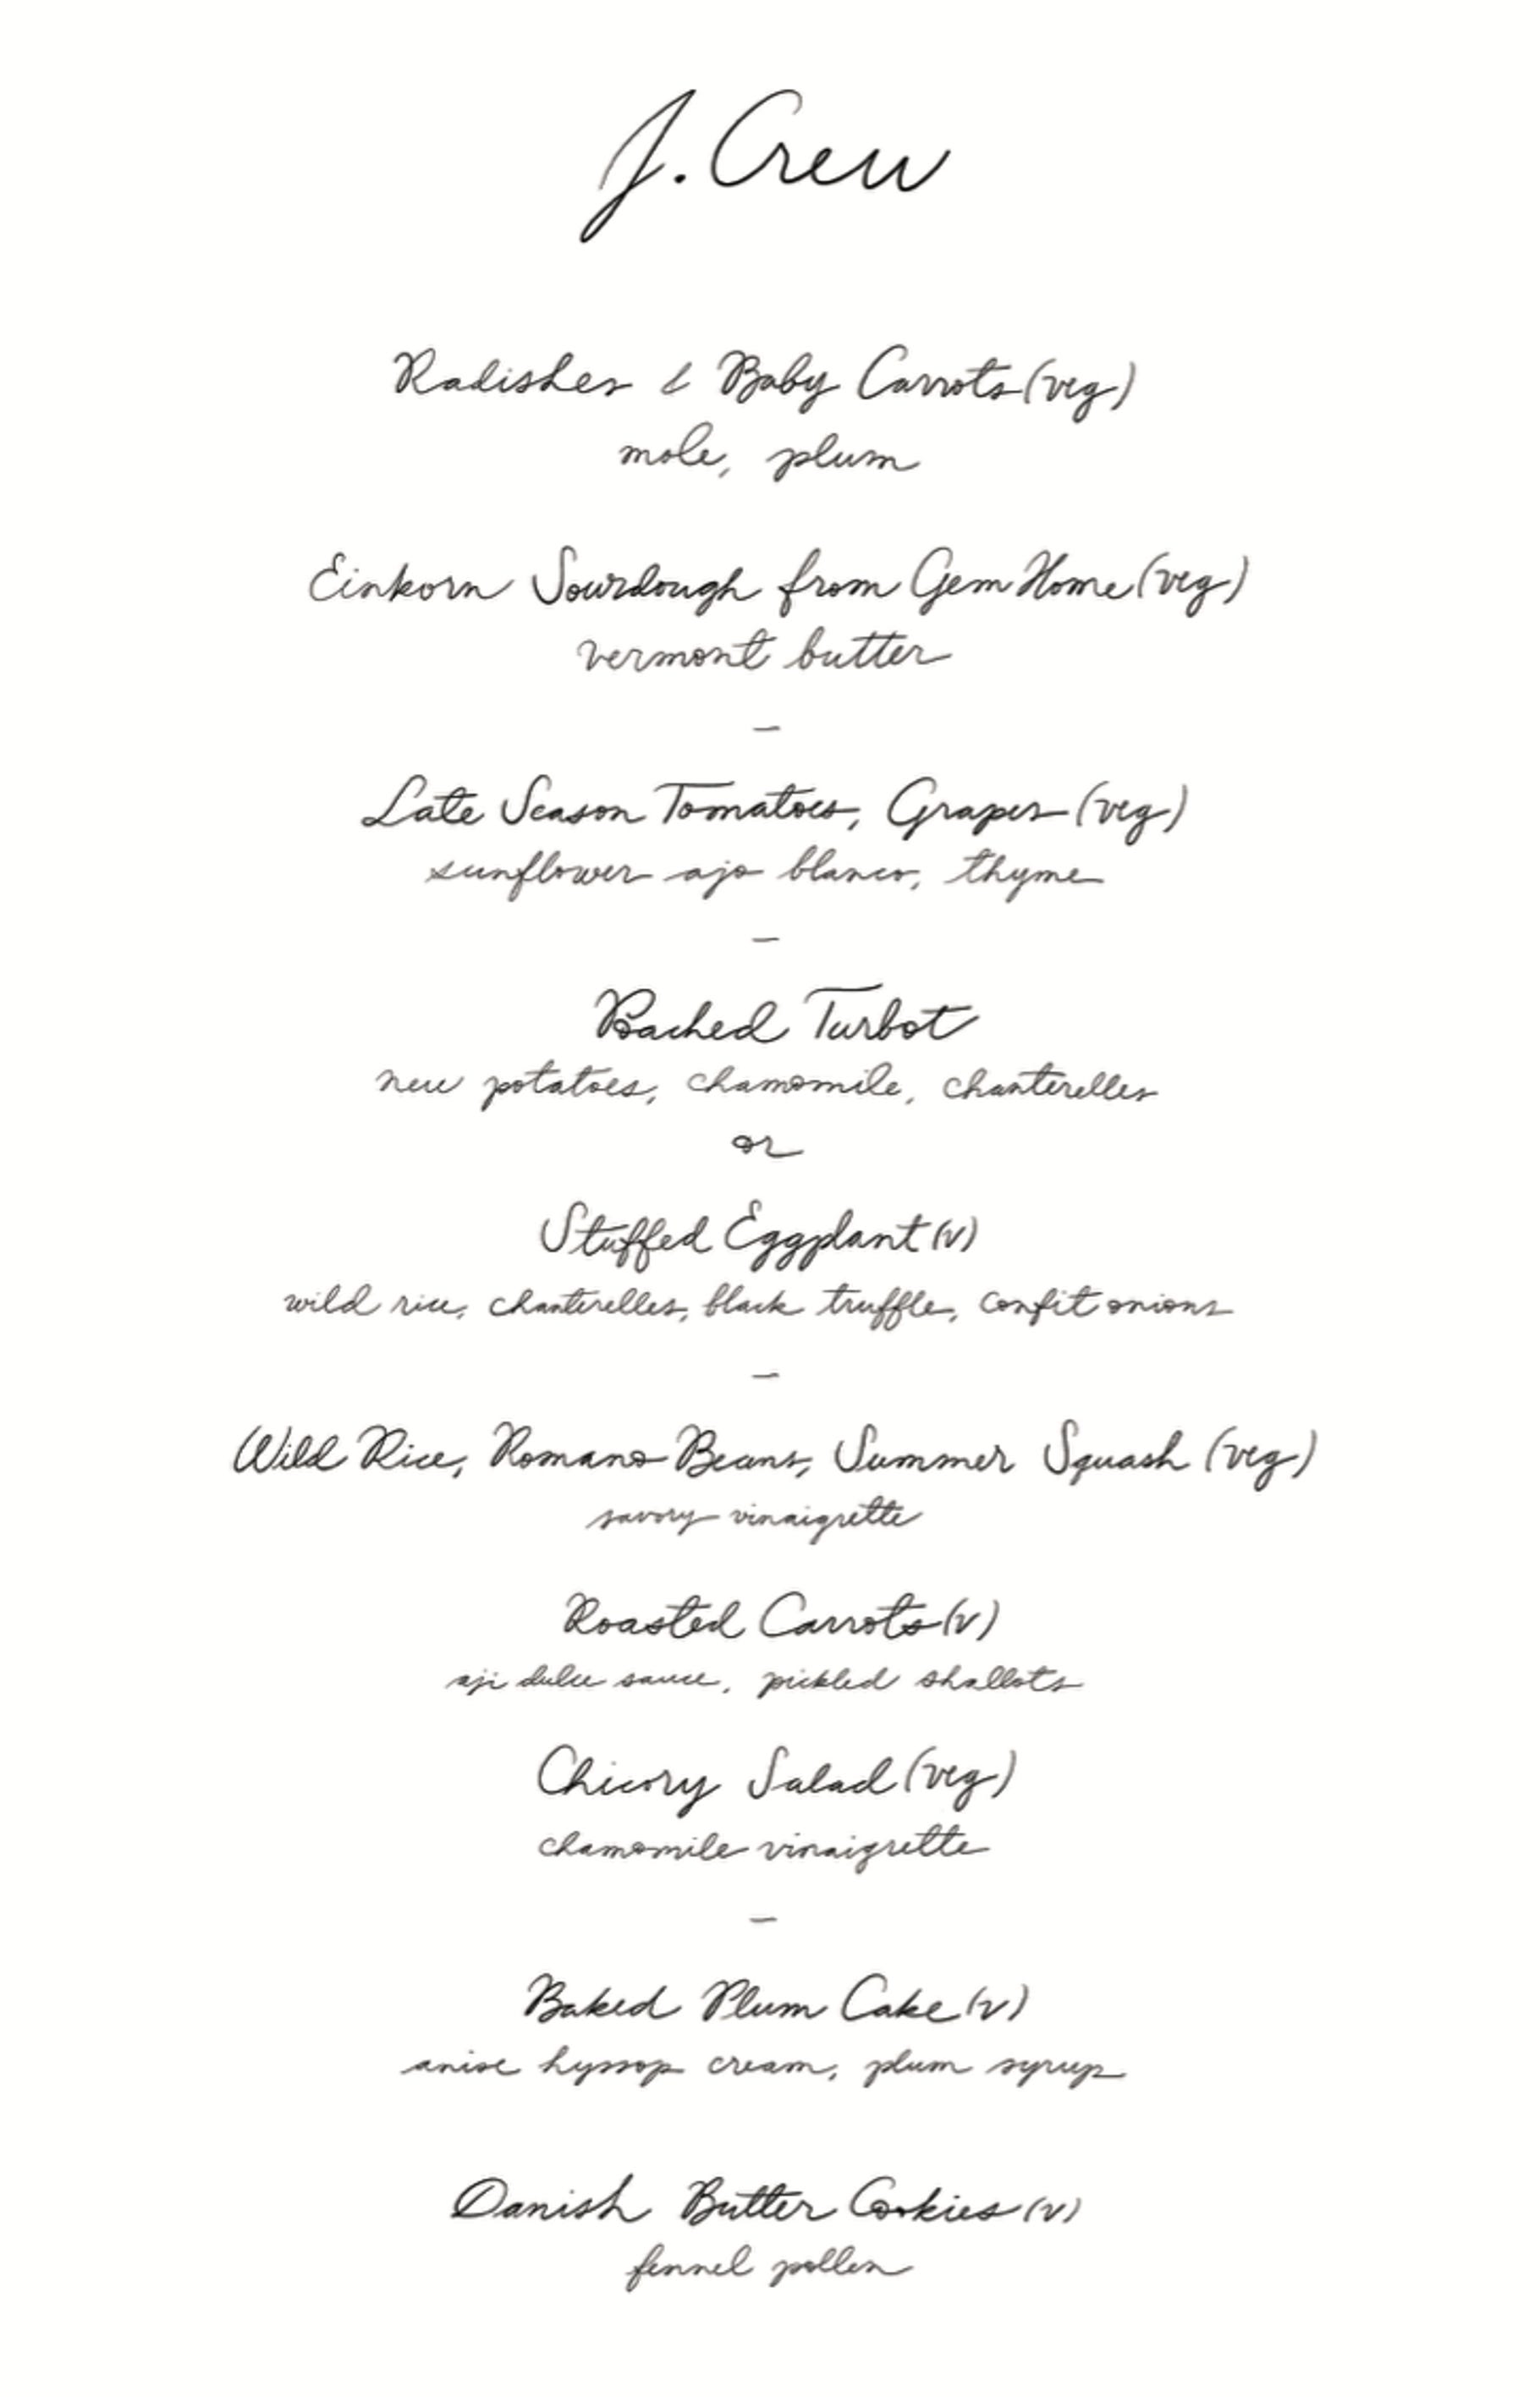 J. Crew
Radishes & Baby Carrots (veg)
mole, plum
Einkorn Sourdough from Gem Home (veg)
vermont butter
—
Late Season Tomatoes, Grapes (veg)
sunflower ajo blanco, thyme
—
Poached Turbot
new potatoes, chamomile, chanterelles
or
Stuffed Eggplant (v)
wild rice, chanterelles, black truffle, confit onions
—
Wild Rice, Romano Beans, Summer Squash (veg)
savory vinaigrette
Roasted Carrots (v)
aji dulce sauce, pickled shallots
Chicory Salad (veg)
chamomile vinaigrette
—
Baked Plum Cake (v)
anise hyssop cream, plum syrup
Danish Butter Cookies (v)
fennel pollen